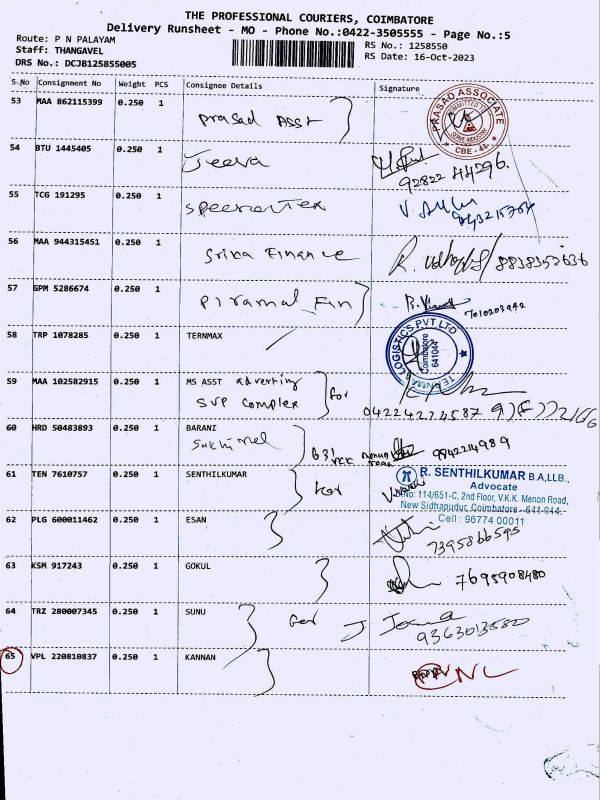 THE PROFESSIONAL COURIERS, COIMBATORE
Delivery Runsheet - MO - Phone No.:0422-3505555 - Page No.:5
Route: P N PALAYAM
RS No.: 1258550
Staff: THANGAVEL
RS Date: 16-Oct-2023
DRS No.: DCJB125855005
S.No Consignment No Weight PCS Consignee Details Signature
53 MAA 862115399 0.250 1 Prasad ASST
PRASAD ASSOCIATE
CBE - 44
54 BTU 1445405 0.250 1 Jeeva
92822 44296
55 TCG 191295 0.250 1
56 MAA 944315451 0.250 1 Srika Finance
R. 8838352636
57 GPM 5286674 0.250 1 Piramal Fin
7010203942
58 TRP 1078285 0.250 1 TERNMAX
LOGISTICS PVT LTD
Coimbatore
641044
59 MAA 102582915 0.250 1 MS ASST advertising
SVP Complex for
04224274587
60 HRD 50483893 0.250 1 BARANI
9942214989
61 TEN 7610757 0.250 1 SENTHILKUMAR for
R. SENTHILKUMAR B.A,LLB.,
Advocate
No: 114/651-C, 2nd Floor, V.K.K. Menon Road,
New Sidhapudur, Coimbatore - 641 044.
Cell : 96774 00011
62 PLG 600011462 0.250 1 ESAN
7395866595
63 KSM 917243 0.250 1 GOKUL
7695908480
64 TRZ 280007345 0.250 1 SUNU for
9363013580
65 VPL 220810837 0.250 1 KANNAN